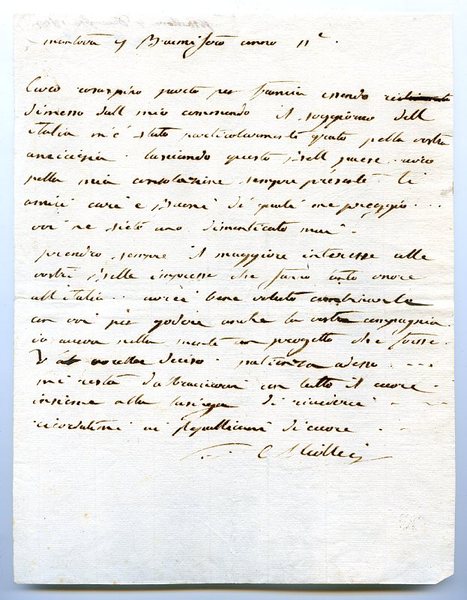 mantova 9 Brumifero anno 11.º
Caro rosaspina parto per francia essendo
dimesso dall mio commando il soggiorno dell
italia m'è stato particolarmente grato pella vostra
amicizia lasciando questo bell paese avrò
pella mia consolazione sempre presente li
amici cari e buoni di quali me preggio . . .
voi ne siete uno dimenticato mai .
prendro sempre il maggiore interesse alle
vostri belle imprese che fanno tanto onore
all'italia . avrei bene voluto combinarle
con voi per godere anche la vostra compagnia
io aveva nella mente un progetto che fosse
pazienza adesso . . .
mi resta d'abbracciarvi con tutto il cuore
insieme alla lusinga di rivedervi . .
ricordatemi ai republicani di cuore . .
Miollis